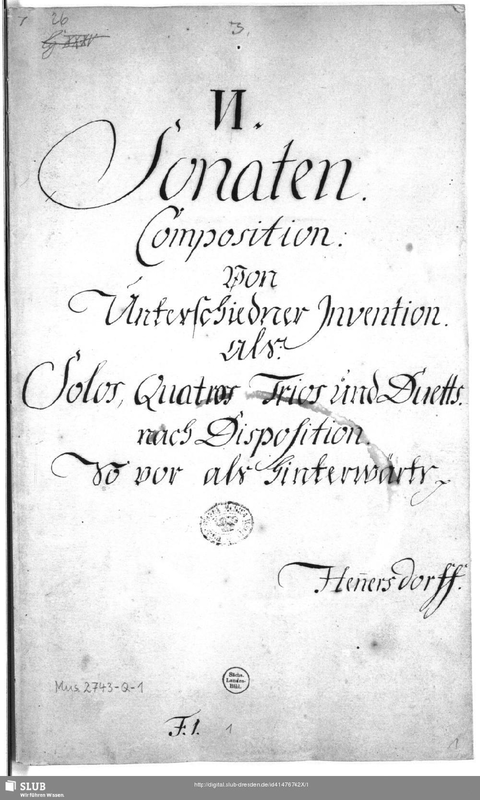 26
3.
VI.
Sonaten.
Composition:
Von
Unterschiedner Invention.
als:
Solos, Quatros Trios und Duetts.
nach Disposition.
So vor als hinterwärts
Hen̄ersdorff.
Sächs.
Landes-
Bibl.
Mus. 2743-Q-1
F. 1. 1
1
SLUB
Wir führen Wissen.
http://digital.slub-dresden.de/id41476742X/1